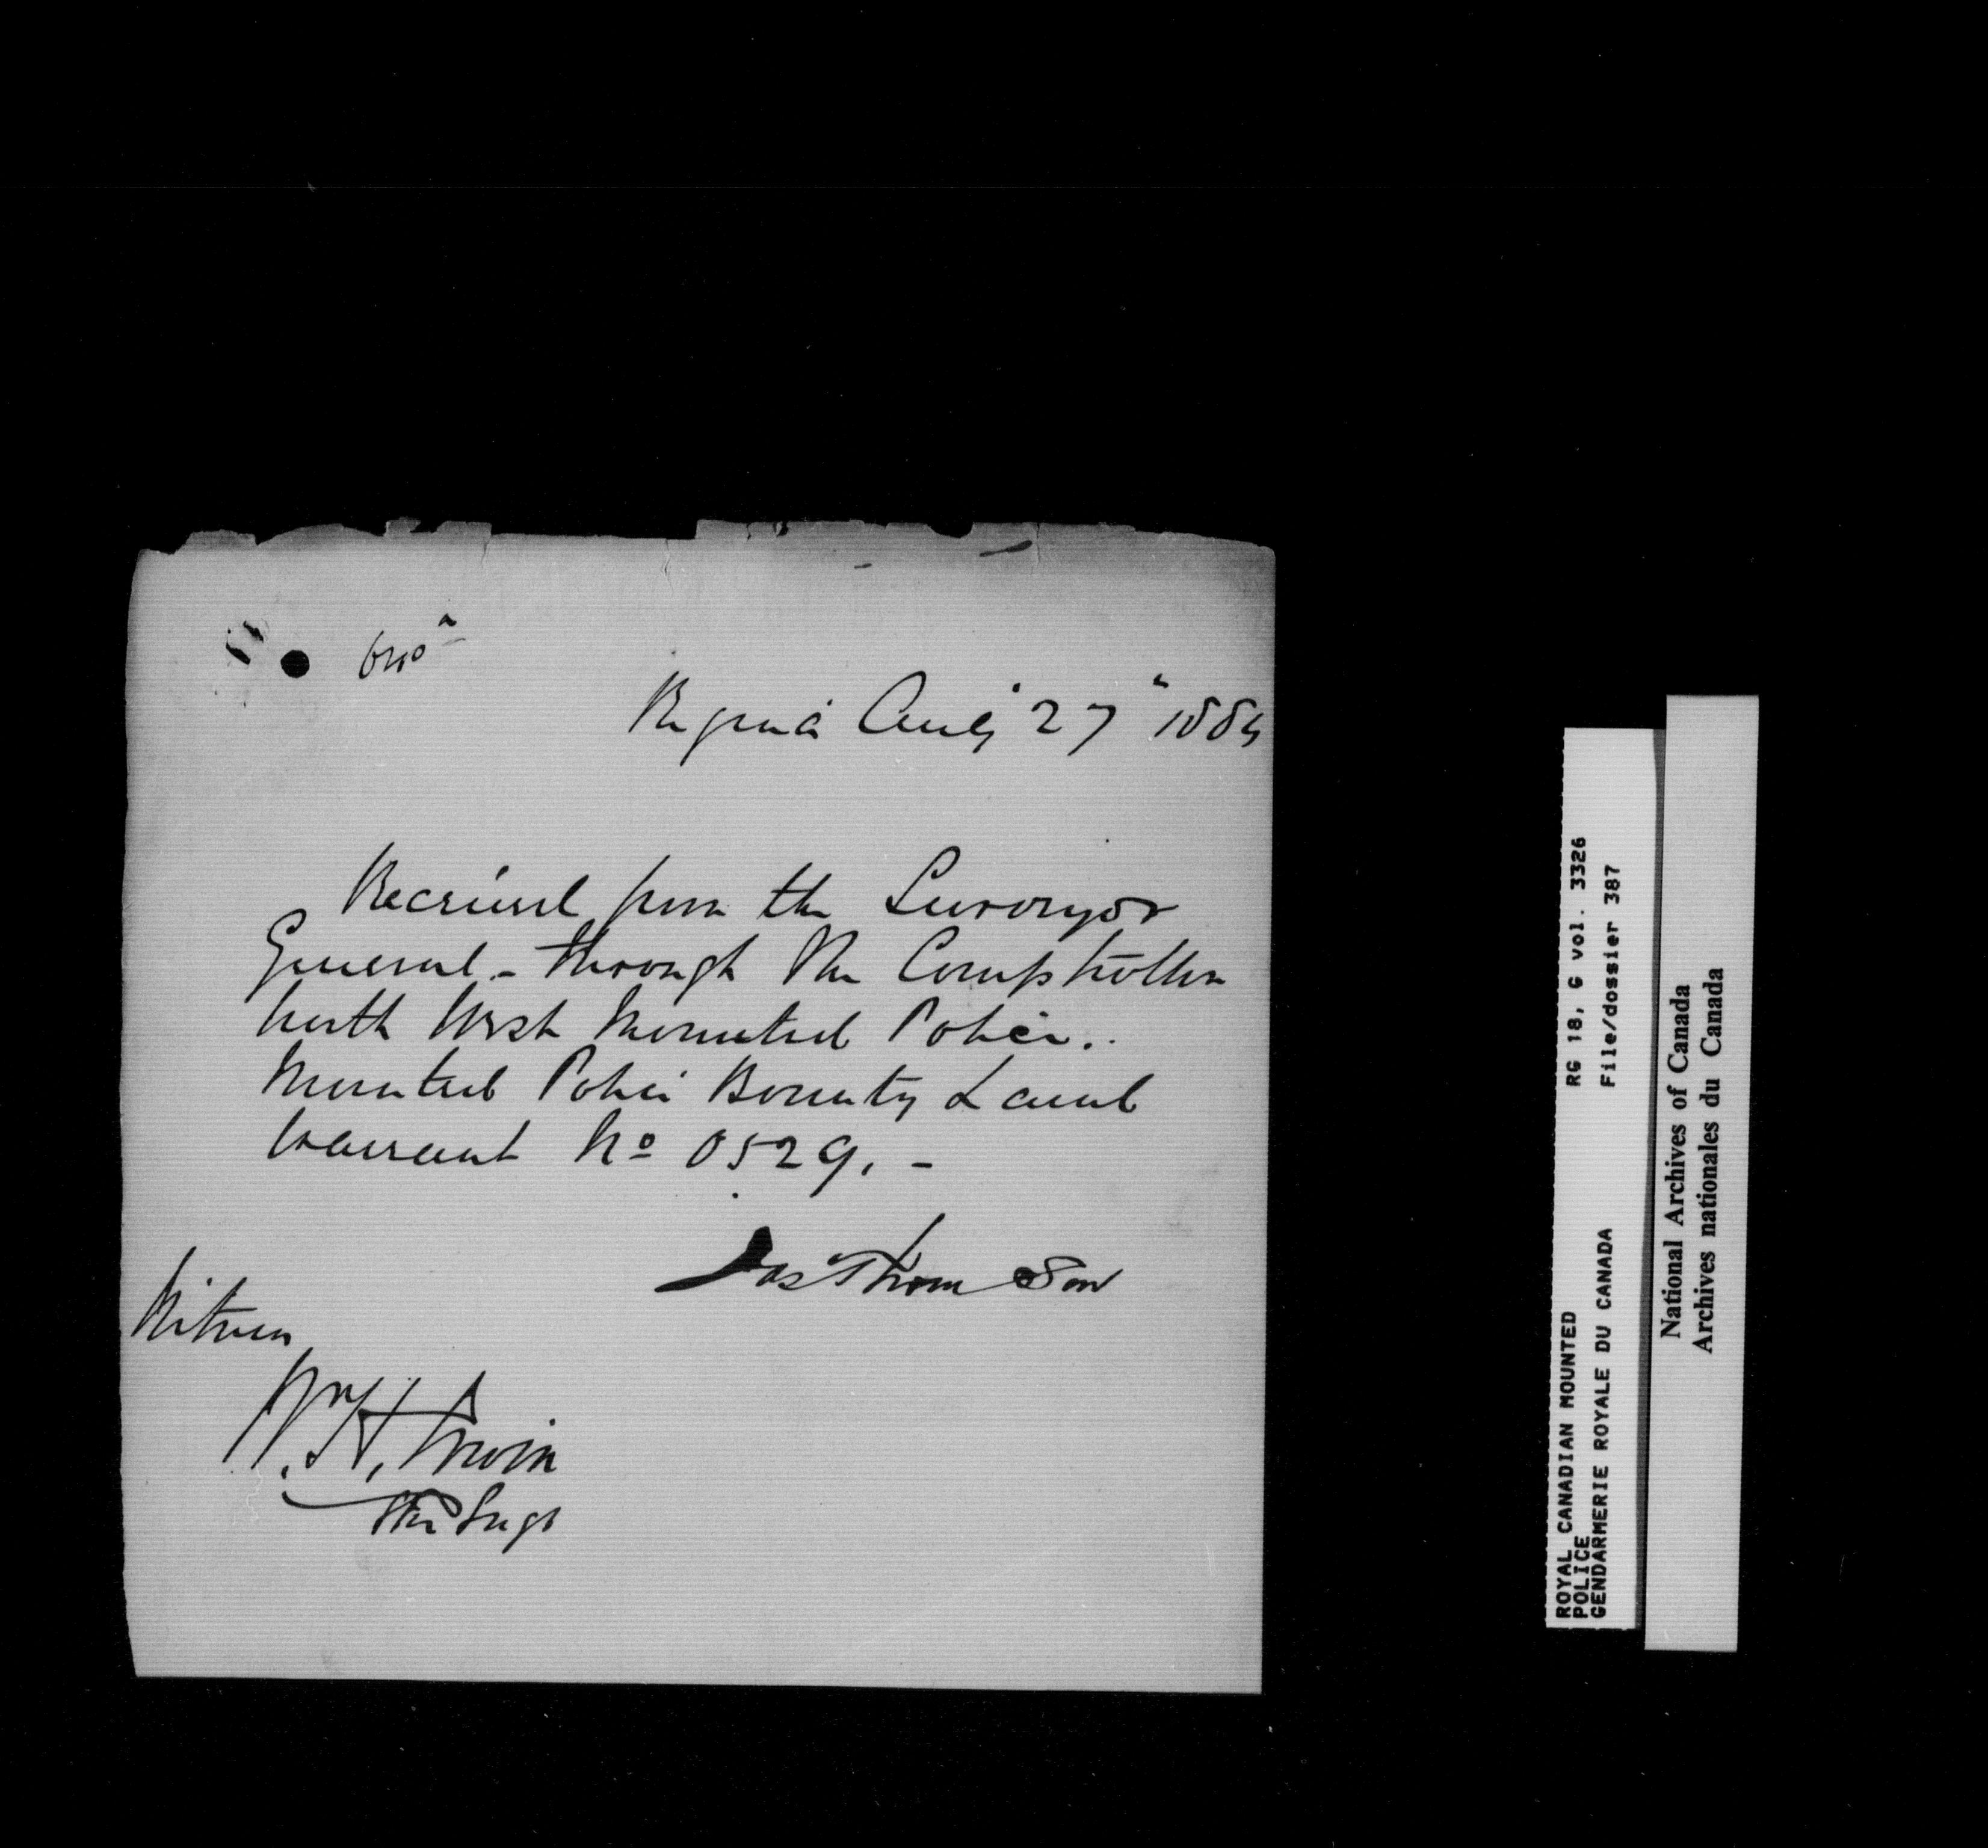 Regina Aug 27" 1885
Received from the Surveyor
General - through the Comptroller
North West Mounted Police..
Mounted Police Bounty Land
Warrant No 0529. -
Jas Thomson
Witness
W. H. Irwin
Staff Sergt
ROYAL CANADIAN MOUNTED
POLICE
GENDARMERIE ROYALE DU CANADA
RG 18, G vol. 3326
File/dossier 387
National Archives of Canada
Archives nationales du Canada